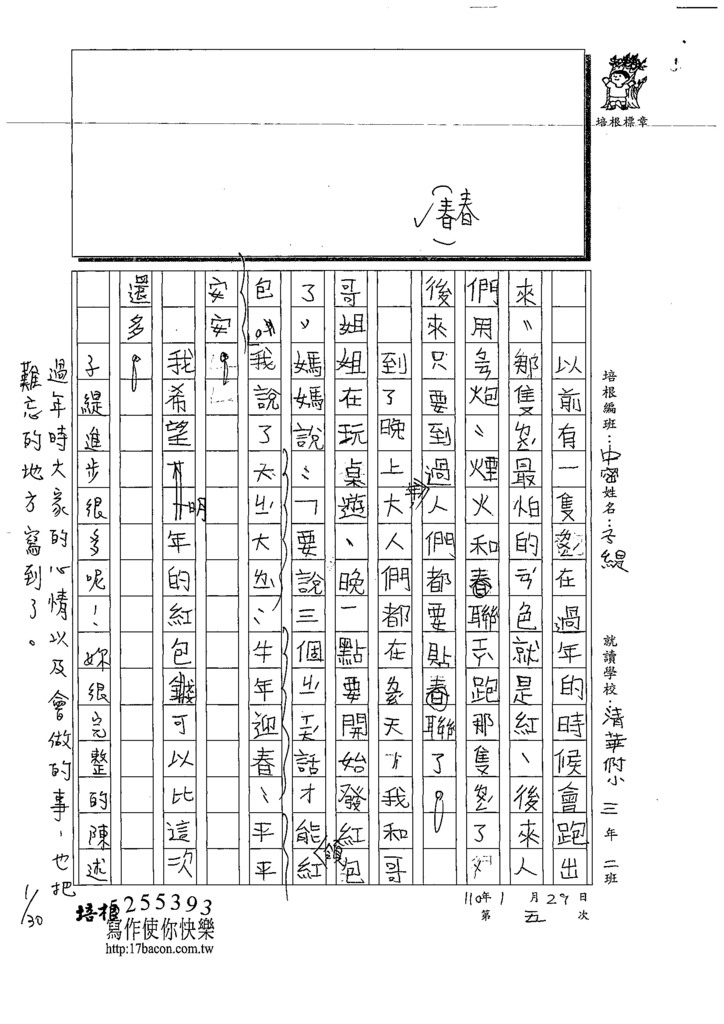 培根標章
培根編班：中密 姓名：子緹 就讀學校：清華附小 三年二班
110年1月29日
第五次
(春春)
以前有一隻 在過年的時候會跑出
來，那隻 最怕的 色就是紅，後來人
們用 炮、煙火和春聯 跑那隻 了
後來只要到過年人們都要貼春聯了
到了晚上大人們都在 天，我和哥
哥姐姐在玩桌遊、晚一點要開始發紅包
了，媽媽說：「要說三個ㄐ 話才能領紅
包。」我說了大ㄐ大 、牛年迎春、平平
安安。
我希望明年的紅包錢可以比這次
還多。
子緹進步很多呢！妳很完整的陳述
過年時大家的心情以及會做的事，也把
難忘的地方寫到了。
1/30
培根5255393
寫作使你快樂
http:17bacon.com.tw